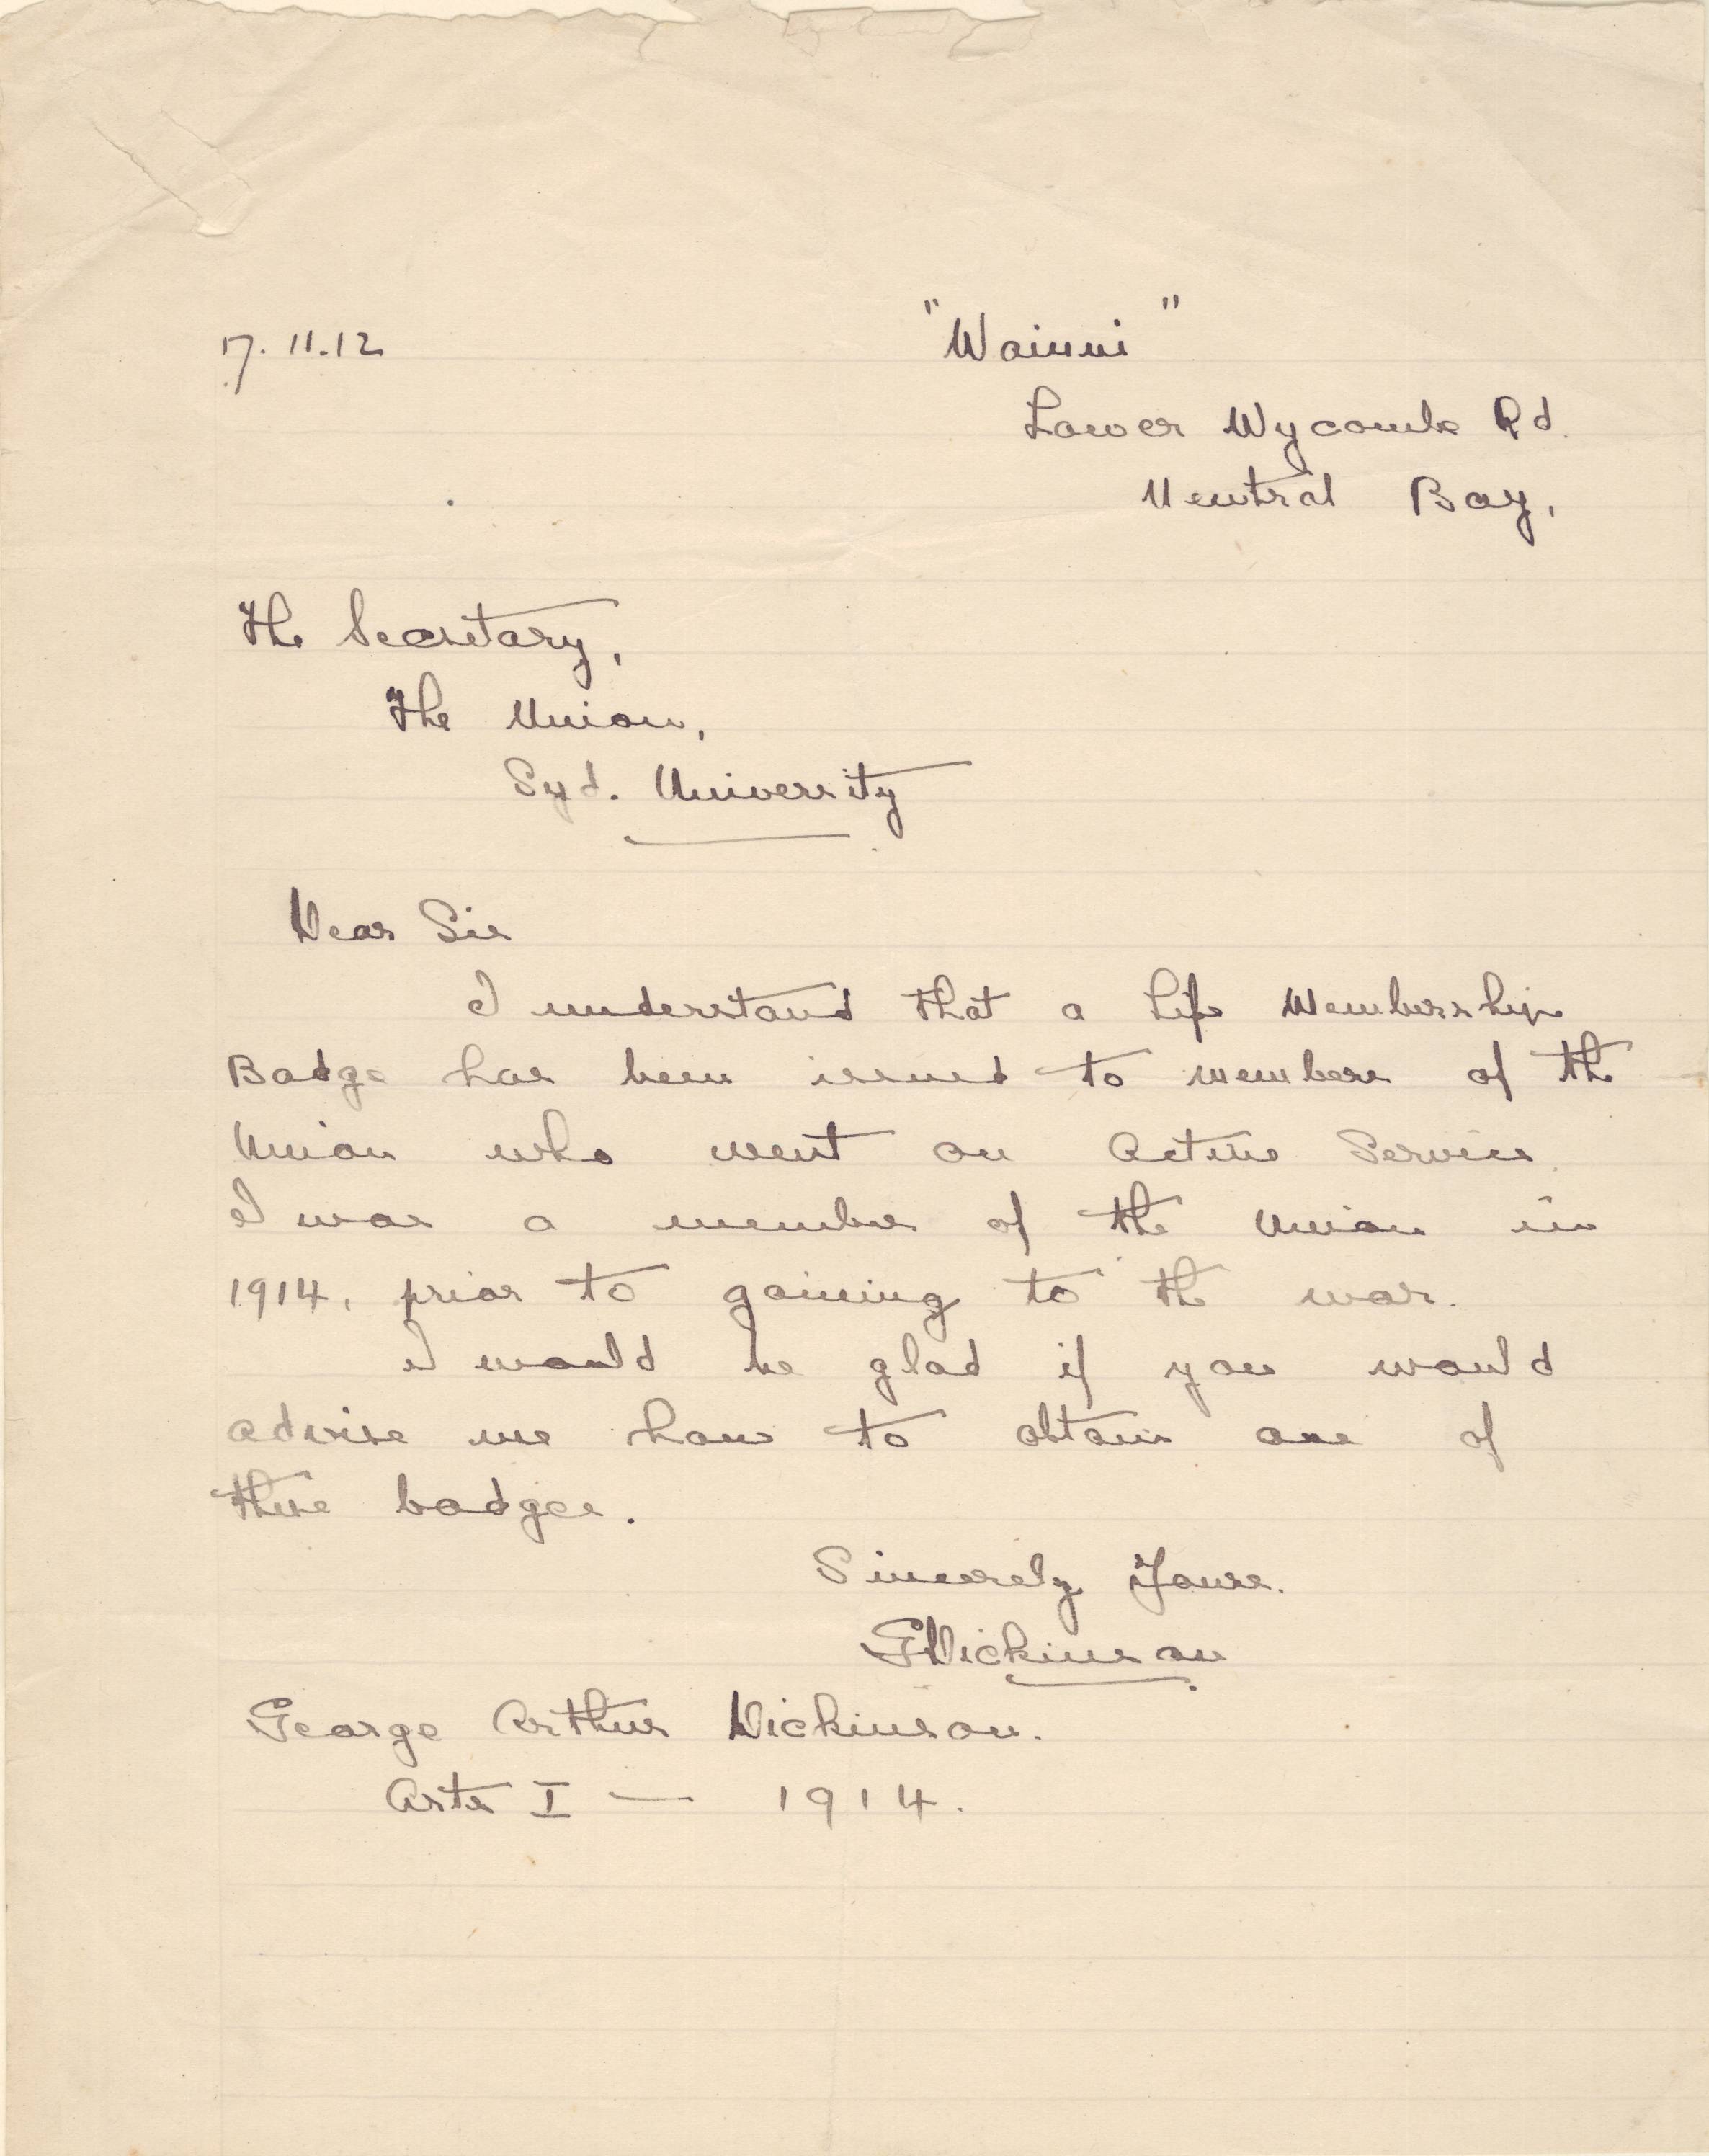 17.11.12
"Wainui"
Lower Wycombe Rd.
Neutral Bay,
The Secretary,
The Union,
Syd. University
Dear Sir
I understand that a Life Membership
Badge has been issued to members of the
Union who went on Active Service.
I was a member of the Union in
1914, prior to gaining to the war.
I would be glad if you would
advise me how to obtain one of
these badges.
Sincerely Yours.
GDickinson
George Arthur Dickinson.
Arts I — 1914.